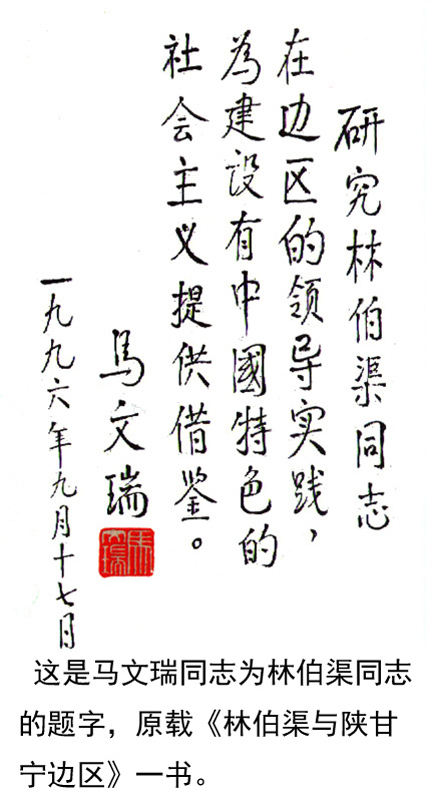 研究林伯渠同志
在边区的领导实践，
為建设有中國特色的
社会主义提供借鉴。
马文瑞
一九九六年九月十七日
这是马文瑞同志为林伯渠同志
的题字，原载《林伯渠与陕甘
宁边区》一书。